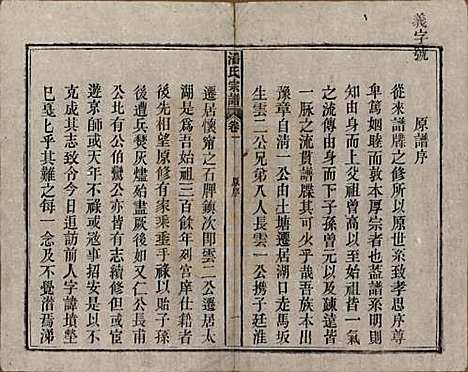 義字號
原譜序
從來譜牒之修所以原世系致孝思序尊
卑篤姻睦而敦本厚宗者也蓋譜系明則
知由身而上父祖曾高以至始祖皆一氣
之流傳由身而下子孫曾元以及踈遠皆
一脉之流貫譜牒其可少乎哉吾族本出
豫章自清一公由土塘遷居湖口走馬坂
生雲二公兄弟八人長雲一公携子廷淮
潘氏宗譜
卷一
原序
一
遷居懷甯之石牌鎮次即雲二公遷居太
湖是爲吾始祖三百餘年列宮庠仕籍者
後先相望原修有家乘垂示後以貽子孫
後遭兵燹灰燼殆盡厥後又仁公長甫
公北有公伯鸞公亦皆有志續修但或宦
遊京師或天年不祿或邀事招安是以不
克成其志致令今日追訪前人字諱墳塋
已戞乎其難之每一念及不覺潸焉涕